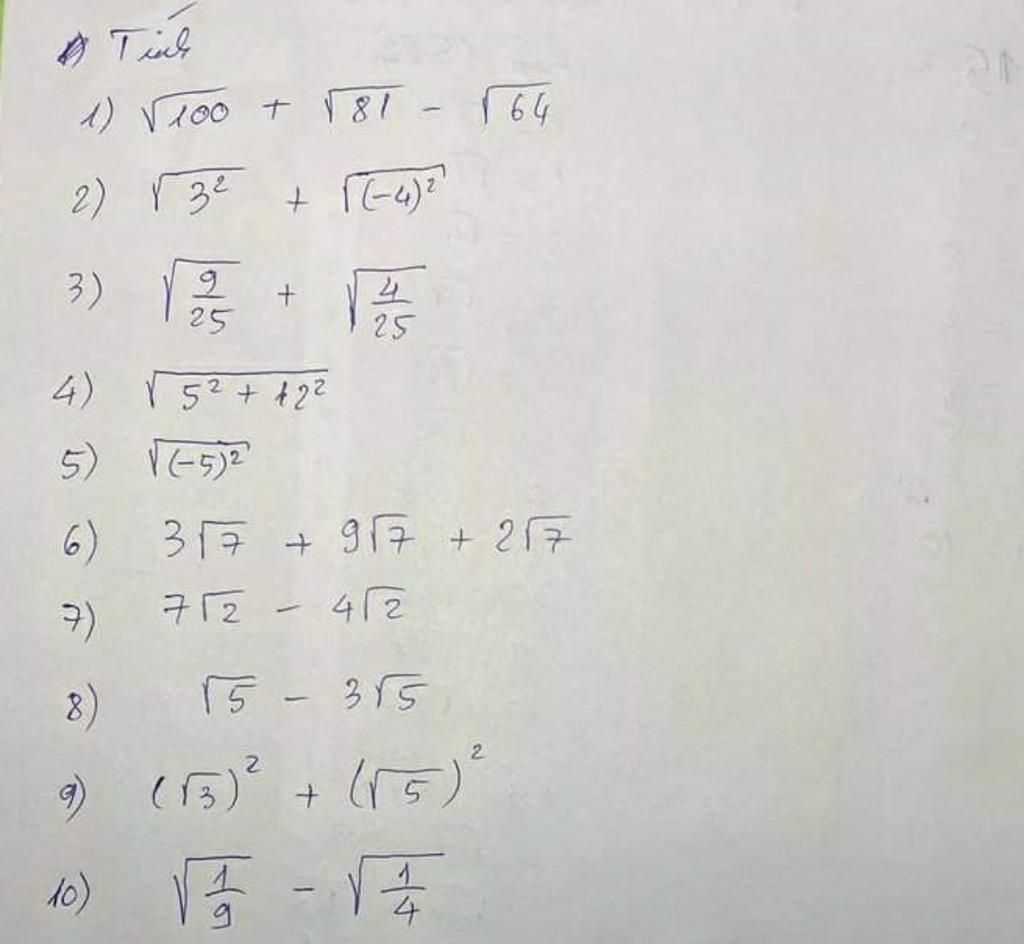 Tính
1) √100 + √81 - √64
2) √3² + √(-4)²
3) √9/25 + √4/25
4) √5² + 12²
5) √(-5)²
6) 3√7 + 9√7 + 2√7
7) 7√2 - 4√2
8) √5 - 3√5
9) (√3)² + (√5)²
10) √1/9 - √1/4